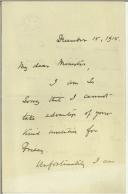 December 15, 1915.
My dear Minister,
I am so
sorry that I cannot
take advantage of your
kind invitation for
Friday.
Unfortunately I am